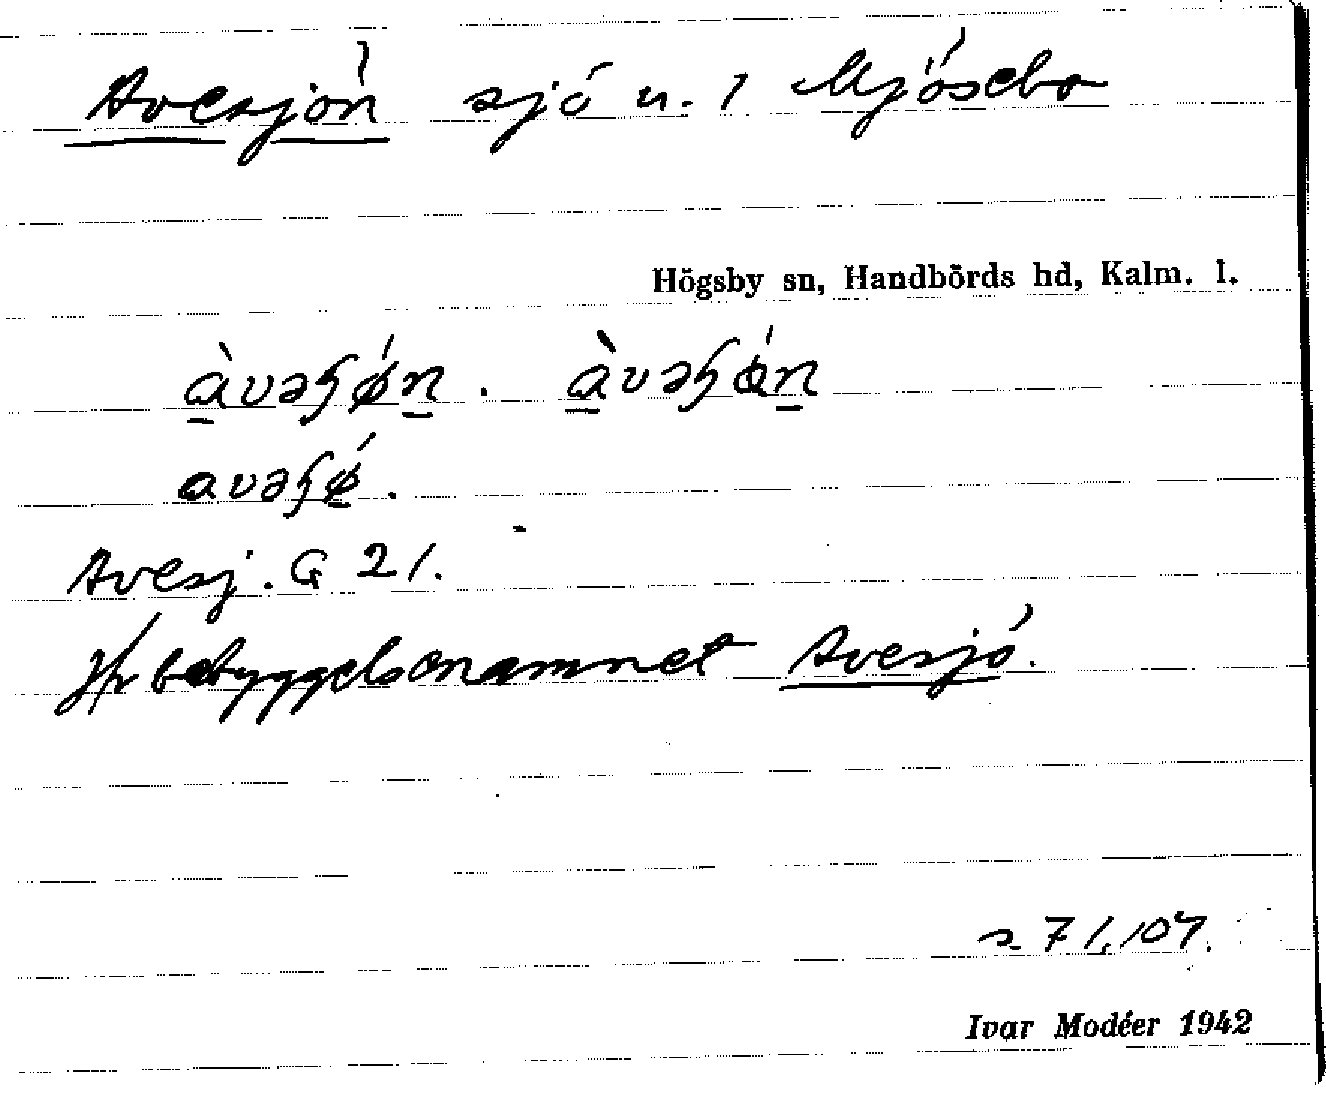 Avesjön sjö n. 1 Mjösebo
Högsby sn, Handbörds hd, Kalm. l.
àvəɧǿn . àvəɧǿn
avəɧǿ.
Avesj. G 21.
Jfr bebyggelsenamnet Avesjö.
s 71, 107.
Ivar Modéer 1942